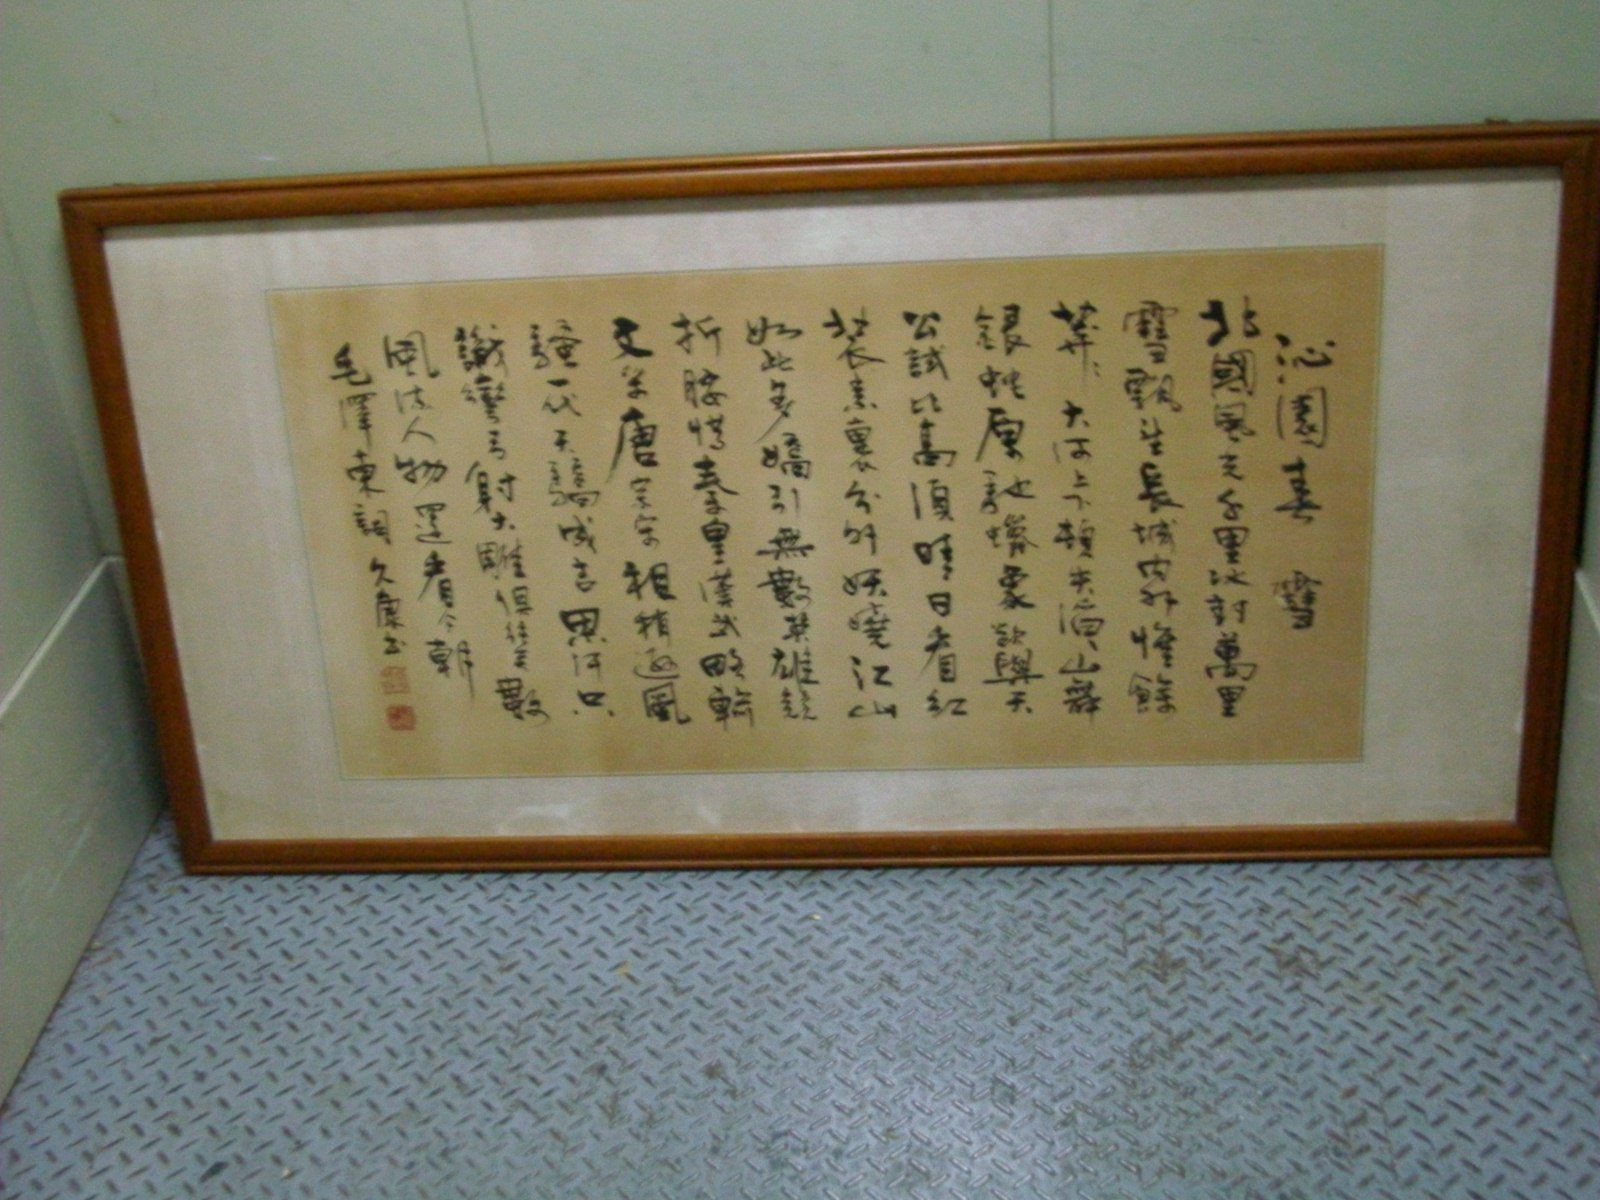 沁園春 雪
北國風光千里冰封萬里
雪飄望長城內外惟餘
莽莽大河上下頓失滔滔山舞
銀蛇原馳蠟象欲與天
公試比高須晴日看紅
裝素裹分外妖嬈江山
如此多嬌引無數英雄競
折腰惜秦皇漢武略輸
文采唐宗宋祖稍遜風
騷一代天驕成吉思汗只
識彎弓射大雕俱往矣數
風流人物還看今朝
毛澤東詞 久康書